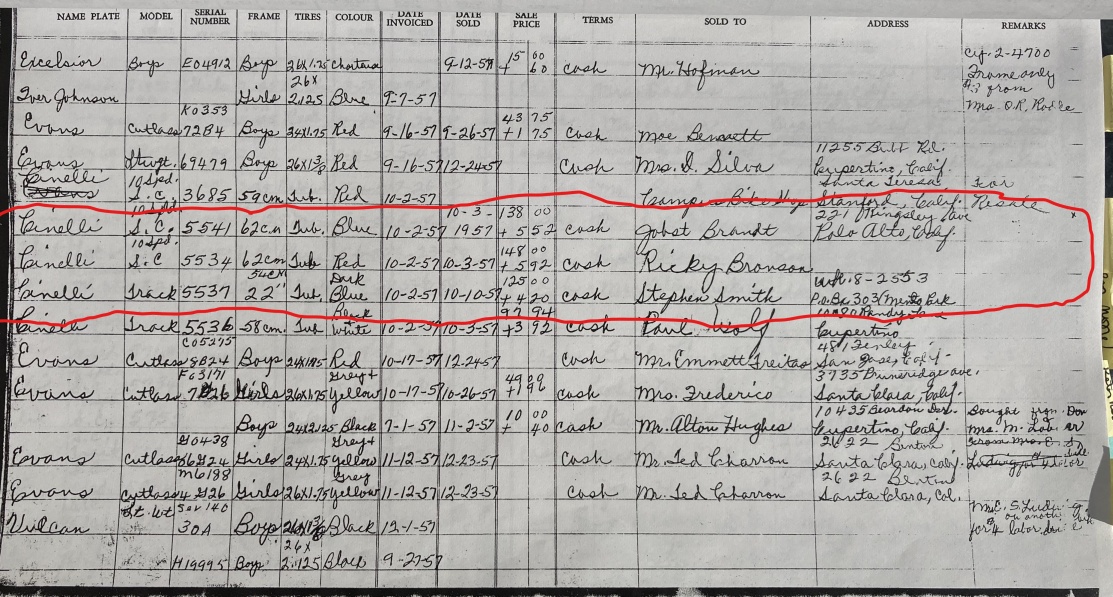 NAME PLATE MODEL SERIAL NUMBER FRAME TIRES COLOUR DATE INVOICED DATE SOLD SALE PRICE TERMS SOLD TO ADDRESS REMARKS
Excelsior Boys E04912 Boys 26x1.75 9-12-57 15 00 + 60 cash Mr. Hofman Cif. 2-4700 Frame only $3 from Mrs. O.R.
Iver Johnson Girls 26x 2.125 Blue 9-7-57
Evans Cutlass K0353 7284 Boys 24x1.75 Red 9-16-57 9-26-57 43 75 +1 75 Cash Moe Bennett
Evans 69479 Boys 26x1 3/8 Red 9-16-57 12-24-57 Cash Mrs. D. Silva 11255 Rd. Cupertino, Calif.
Cinelli 10 Spd. S.C. 3685 59cm Tub. Red 10-2-57 Campus Bike Santa Teresa Stanford, Calif. For Resale
Cinelli 10 Spd. S.C. 5541 62cm Tub. Blue 10-2-57 10-3-1957 138 00 + 5 52 cash Jobst Brandt 221 Kingsley Ave Palo Alto, Calif.
Cinelli 10 Spd. S.C 5534 62cm Tub Red 10-2-57 10-3-57 148 00 + 5 92 cash Ricky Bronson
Cinelli Track 5537 54cm 22" Tub. Dark Blue 10-2-57 10-10-57 125 00 + 4 20 cash Stephen Smith 8-2553 P.O. Bx 303 Menlo Park
Cinelli Track 5536 58cm. Tub Black White 10-2-57 10-3-57 97 94 +3 92 Cash Paul Wolf Cupertino
Evans Cutlass C05275 Boys 24x1.75 Red 10-17-57 12-24-57 Cash Mr. Emmett Freitas San Jose, Calif.
Evans Cutlass F63171 Girls 26x1.75 Grey + Yellow 10-17-57 10-26-57 49 00 +1 96 Cash Mrs. Frederico 3735 Pruneridge ave. Santa Clara, Calif.
Boys 24x2.125 Black 7-1-57 11-2-57 10 00 + 40 Cash Mr. Alton Hughes 10435 Cupertino, Calif. Bought from Mrs. M.
Evans Cutlass G0438 Girls 24x1.75 Grey + Yellow 11-12-57 12-23-57 Cash Mr. Ted Charron 2622 Benton Santa Clara, Calif.
Evans Cutlass M6188 Girls 26x1.75 Grey Yellow 11-12-57 12-23-57 Cash Mr. Ted Charron 2622 Benton Santa Clara, Cal.
Vulcan Lt. Wt 30A Boys 26x1 3/8 Black 12-1-57 for 4 labor
H19995 Boys 26x 2.125 Black 9-27-57